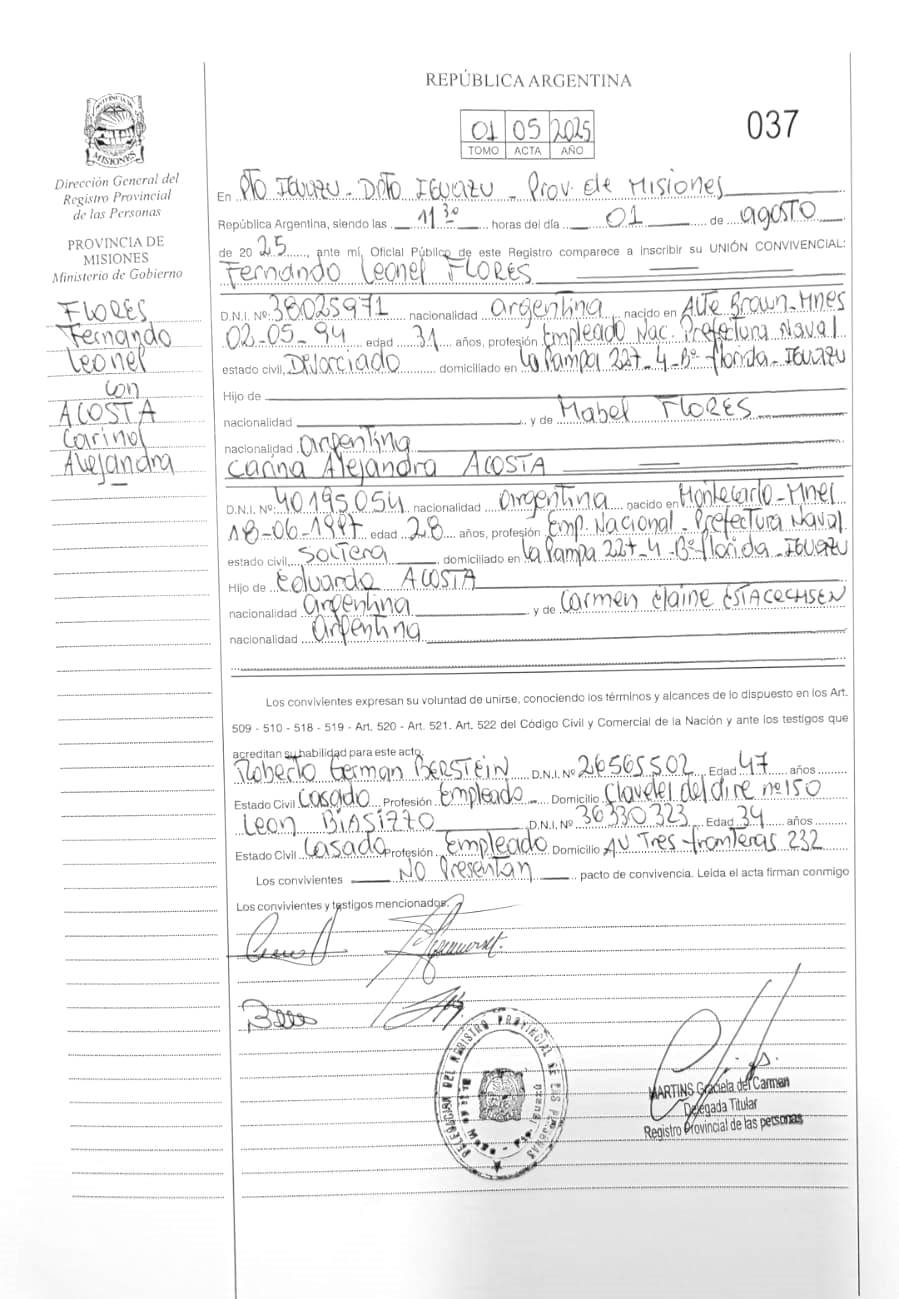 REPÚBLICA ARGENTINA
037
01 05 2025
TOMO ACTA AÑO
PROVINCIA DE MISIONES
Dirección General del
Registro Provincial
de las Personas
PROVINCIA DE
MISIONES
Ministerio de Gobierno
FLORES
Fernando
Leonel
con
ACOSTA
Carina
Alejandra
En Pto IGUAZU - DPTO IGUAZU - Prov. de Misiones
República Argentina, siendo las 11 30 horas del día 01 de agosto
de 2025, ante mí, Oficial Público de este Registro comparece a inscribir su UNIÓN CONVIVENCIAL:
Fernando Leonel FLORES
D.N.I. Nº: 38025971 nacionalidad argentina nacido en Alte Brown - Mnes
02-05-94 edad 31 años, profesión Empleado Nac. Prefectura Naval
estado civil, Divorciado domiciliado en La Pampa 227-4-Bº florida - IGUAZU
Hijo de
nacionalidad y de Mabel FLORES
nacionalidad argentina
Carina Alejandra ACOSTA
D.N.I. Nº: 40195054 nacionalidad argentina nacido en Montecarlo - Mnes
18-06-1997 edad 28 años, profesión Emp. Nacional - Prefectura Naval
estado civil, Soltera, domiciliado en La Pampa 227-4-Bº florida - IGUAZU
Hijo de Eduardo ACOSTA
nacionalidad argentina y de Carmen Elaine
nacionalidad argentina
Los convivientes expresan su voluntad de unirse, conociendo los términos y alcances de lo dispuesto en los Art.
509 - 510 - 518 - 519 - Art. 520 - Art. 521. Art. 522 del Código Civil y Comercial de la Nación y ante los testigos que
acreditan su habilidad para este acto.
Roberto German BERSTEIN D.N.I. Nº 26565502 Edad 47 años
Estado Civil Casado Profesión Empleado Domicilio Clavel del aire nº 150
Leon BIASIZZO D.N.I. Nº 36330323 Edad 34 años
Estado Civil Casado Profesión Empleado Domicilio AV Tres fronteras 232
Los convivientes NO Presentan pacto de convivencia. Leida el acta firman conmigo
Los convivientes y testigos mencionados.
DELEGACION DEL REGISTRO PROVINCIAL DE LAS PERSONAS
MARTINS Graciela del Carmen
Delegada Titular
Registro Provincial de las personas